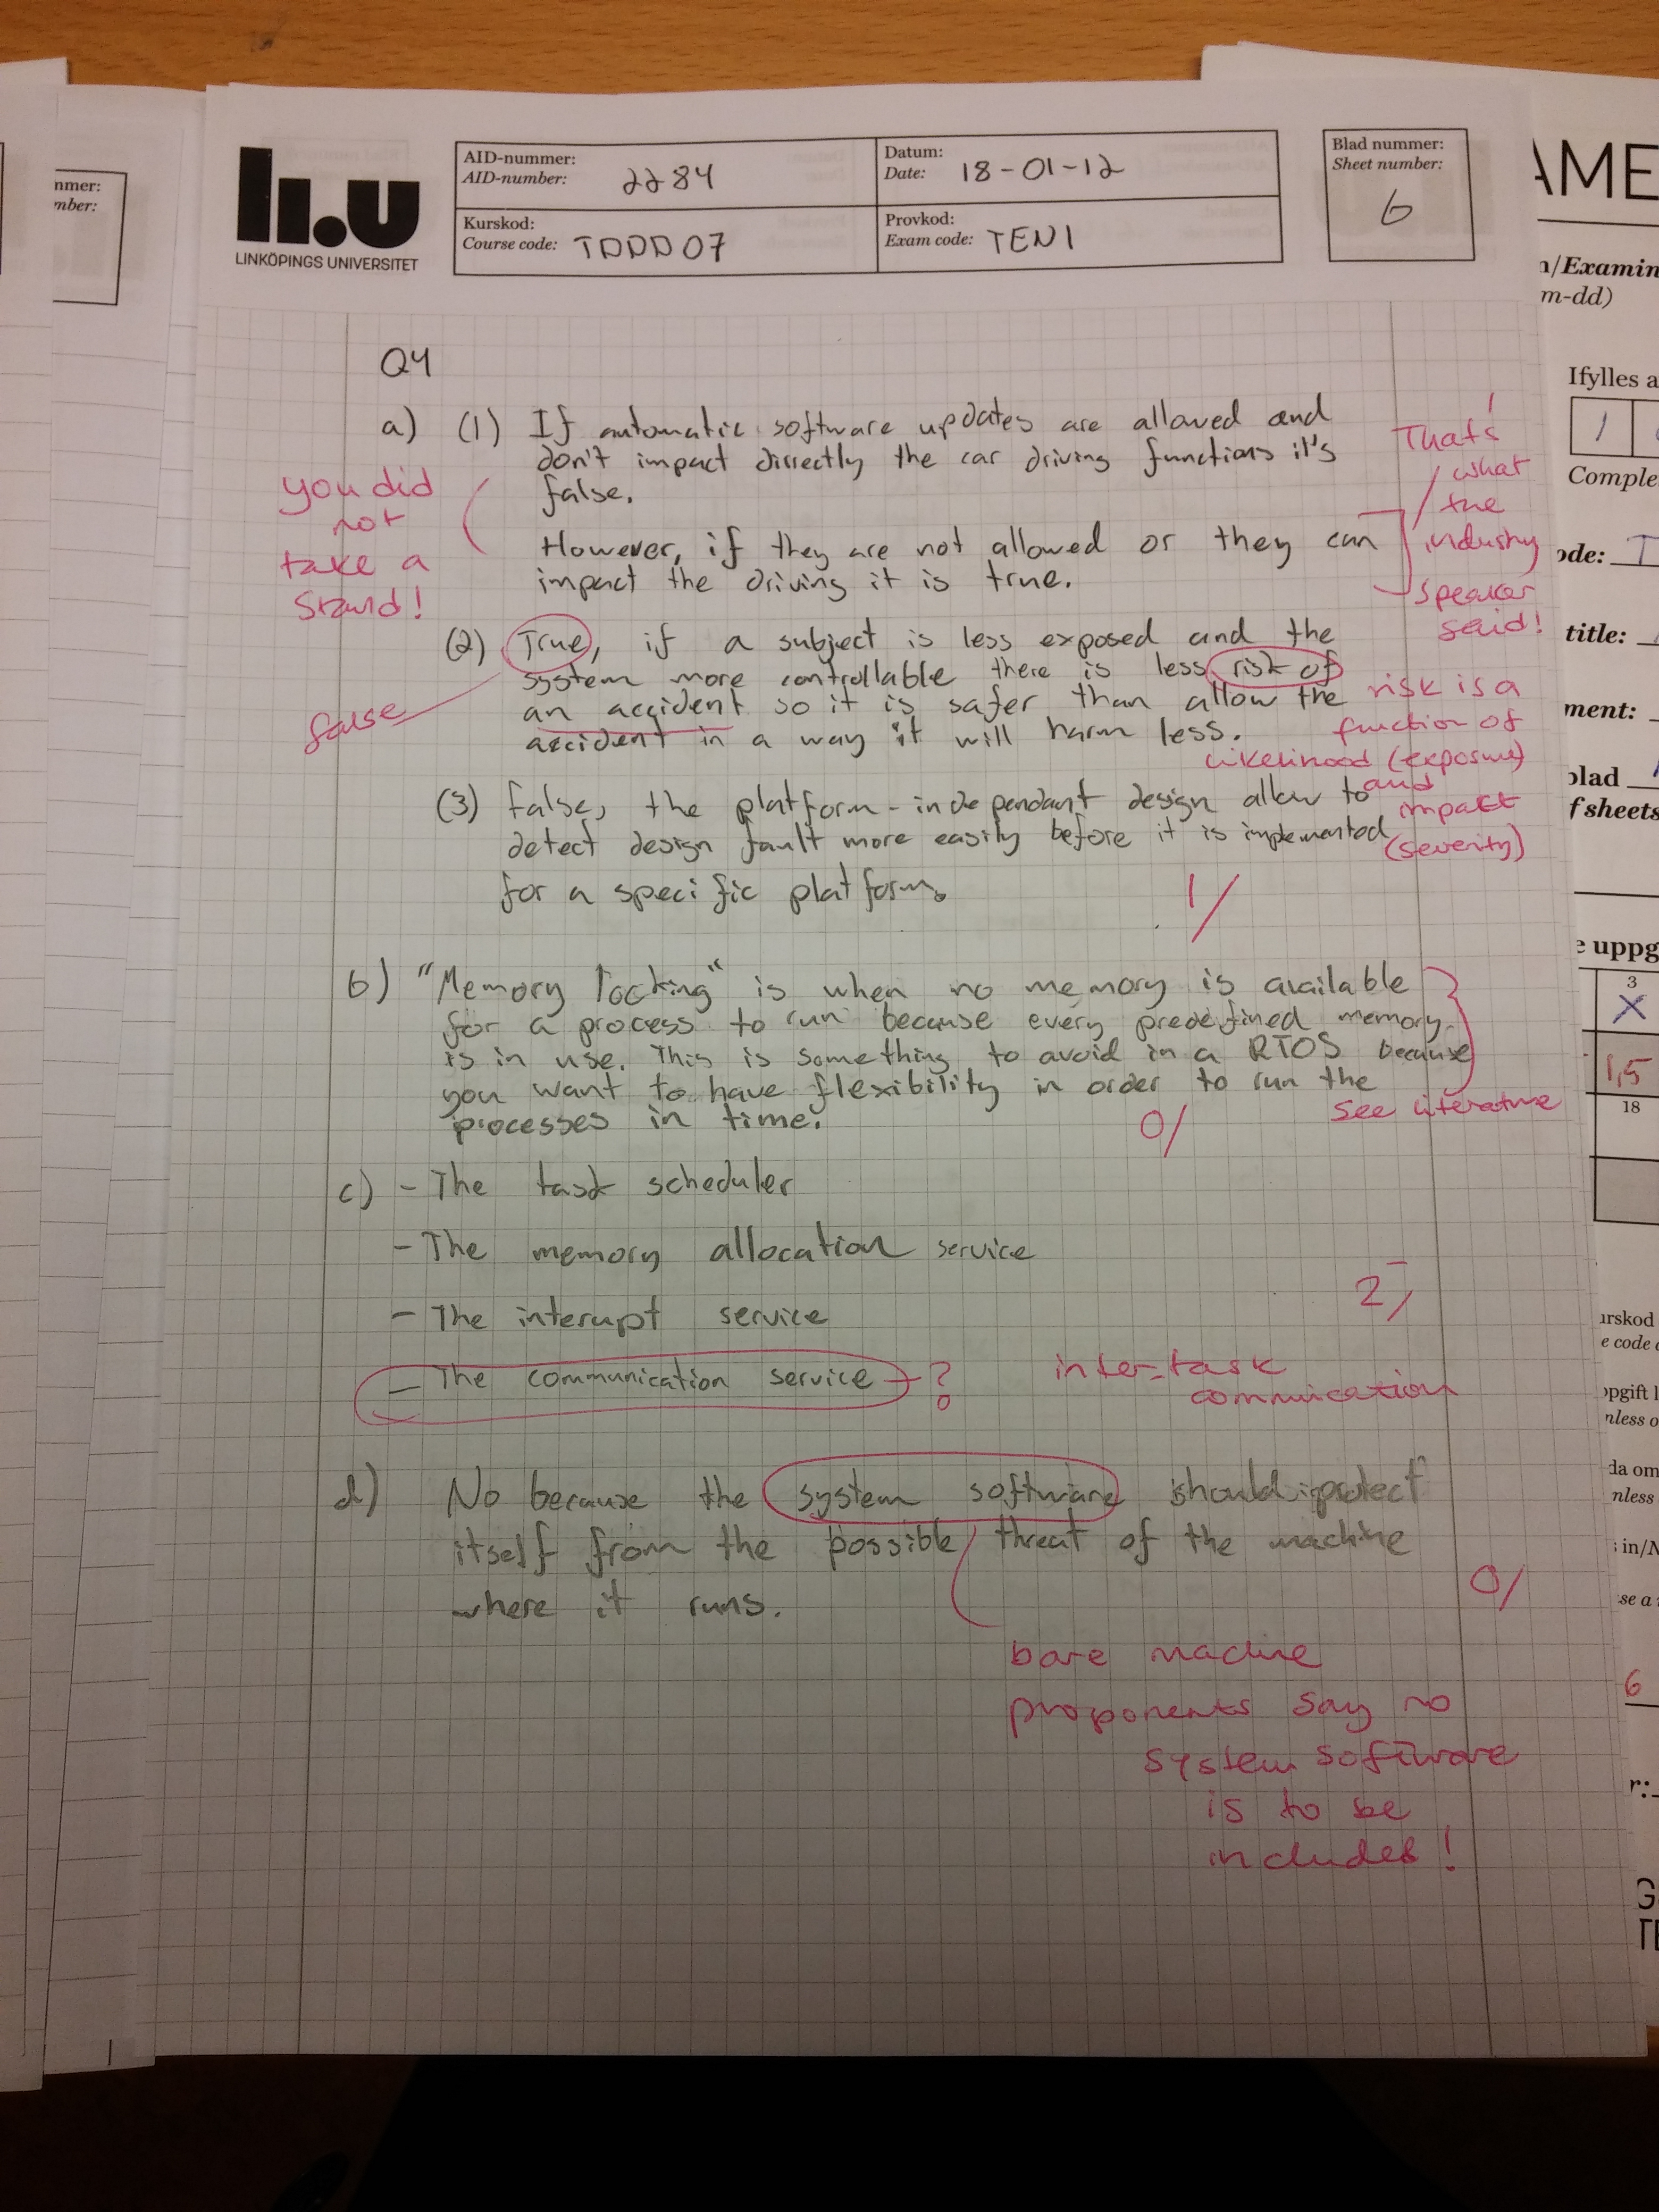 nmer:
mber:
li.u
LINKÖPINGS UNIVERSITET
AID-nummer:
AID-number: 2284
Datum:
Date: 18-01-12
Kurskod:
Course code: TDDD07
Provkod:
Exam code: TEN1
Blad nummer:
Sheet number:
6
AME
n/Examin
m-dd)
Ifylles a
1
Comple
ode: T
title:
ment:
blad
f sheets
e uppg
3
X
1,5
18
urskod
e code
opgift l
nless o
da om
nless
in/N
se a
6
r:
Q4
a) (1) If automatic software updates are allowed and
don't impact dirrectly the car driving functions it's
false.
However, if they are not allowed or they can
impact the driving it is true.
you did
not
take a
stand!
That's
what
the
industry
speaker
said!
(2) True, if a subject is less exposed and the
system more controllable there is less risk of
an accident so it is safer than allow the
accident in a way it will harm less.
false
risk is a
function of
likelihood (exposure)
and
impact
(severity)
(3) false, the platform-independant design allow to
detect design fault more easily before it is implemented
for a specific platform.
1/
b) "Memory locking" is when no memory is available
for a process to run because every predefined memory
is in use. This is something to avoid in a RTOS because
you want to have flexibility in order to run the
processes in time.
see literature
0/
c) - The task scheduler
- The memory allocation service
- The interupt service
2-/
- The communication service ?
inter-task
commnication
d) No because the system software should protect
itself from the possible threat of the machine
where it runs.
0/
bare machine
proponents say no
system software
is to be
included!